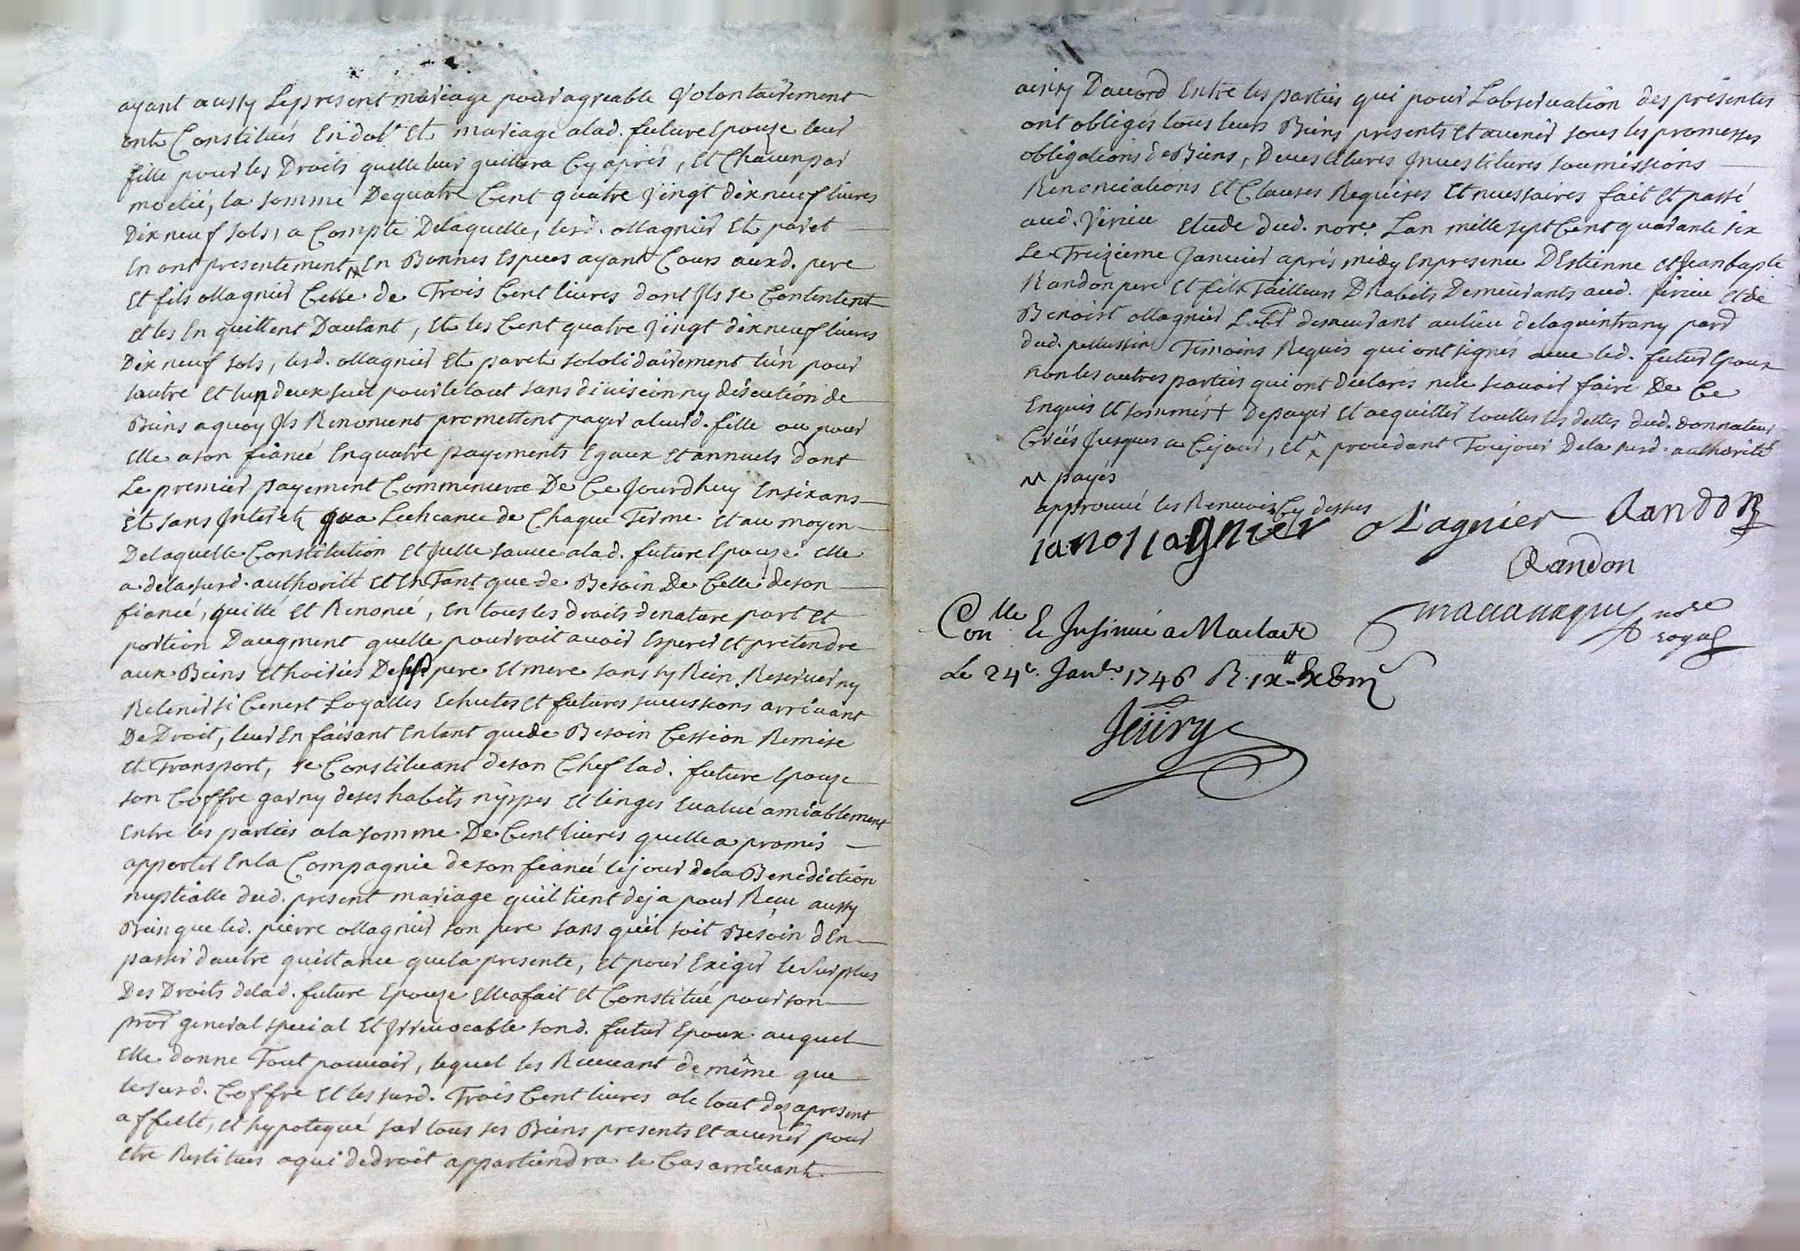 ayant aussy le present mariage pour agreable Volontairement
ont Constitués En dot Et mariage a lad. future Epouze leur
fille pour les Droits quelle leur quittera Cy après, Et Chacun par
moetié, la somme De quatre Cent quatre Vingt dix neuf livres
Dix neuf sols, a Compte De laquelle, lesd. ollagnier Et paret
En ont presentement ^ En Bonnes Especes ayant Cours auxd. pere
Et fils ollagnier Celle de Trois Cent livres dont Ils se Contentent
Et les En quittent Dautant, Et les Cent quatre Vingt dix neuf livres
Dix neuf sols, lesd. ollagnier Et paret sololidairement l'un pour
lautre Et lun deux seul pour le tout sans division ny discutión de
Biens a quoy Ils Renoncent promettent payer a leurd. fille ou pour
Elle a son fiancé En quatre payements Egaux Et annuels dont
Le premier payement Commencera De Ce Jourdhuy En six ans
Et sans Interetz qu a Lecheance de Chaque Terme Et au moyen
De laquelle Constitution Et Icelle sauve a lad. future Epouze Elle
a de la susd. authorité Et En Tant que de Besoin De Celle de son
fiancé, quitté Et Renoncé, En tous les droits de nature part Et
portion Daugment quelle pourroit avoir Esperer Et pretendre
aux Biens Et hoiries De sesd pere Et mere sans sy Rien Reserver ny
Retenir si Cenest Loyalles Echutes Et futures successions arrivant
De Droit, leur En faisant En tant que de Besoin Cession Remise
Et Transport, se Constituant de son Chef lad. future Epouze
son Coffre garny de ses habits nyppes Et linges Evalué amiablement
Entre les parties a la somme De Cent livres quelle a promis
apporter En la Compagnie de son fiancé le jour de la Benediction
nuptialle dud. present mariage quil tient deja pour Reçu aussy
Bien que led. pierre ollagnier son pere sans qu'il soit Besoin d'En
passer d'autre quittance que la presente, Et pour Exiger le Surplus
Des Droits de lad. future Epouze Elle a fait Et Constitué pour son
procr general special Et Irrevocable sond. futur Epoux auquel
Elle donne Tout pouvoir, lequel les Recevant de même que
le susd. Coffre Et les susd. Trois Cent livres a le tout dez apresent
affecté, Et hypotequé sur tous ses Biens presents Et avenir pour
Etre Restitués a qui de droit appartiendra le Cas arrivant
ainsy Dacord Entre les parties qui pour Lobservation des presentes
ont obligés tous leurs Biens presents Et avenir sous les promesses
obligations de Biens, Devestitures Investitures soumissions
Renonciations Et Clauses Requises Et necessaires fait Et passé
aud. Virieu Etude dud. nore. Lan mille sept Cent quarante six
Le Treizieme Janvier après midy En presence D'Estienne Et Jean bapte
Randon pere Et fils Tailleurs D'habits Demeurants aud. Virieu Et de
Benoist ollagnier demeurant au lieu de
dud. pellussin Temoins Requis qui ont signés avec led. futur Epoux
non les autres parties qui ont declarés ne le scavoir faire De Ce
Enquis Et sommés + De payer Et acquitter touttes les dettes dud. donnateur
Créés Jusques a Cejour, Et ^ procedant Toujour De la susd. authorité
^ payés
approuvé les Renvoix Cy dessus
ollagnier Randon
Randon
nore
royal
Conllé Et Insinué a Maclas
Le 24e. Janer. 1746 R.